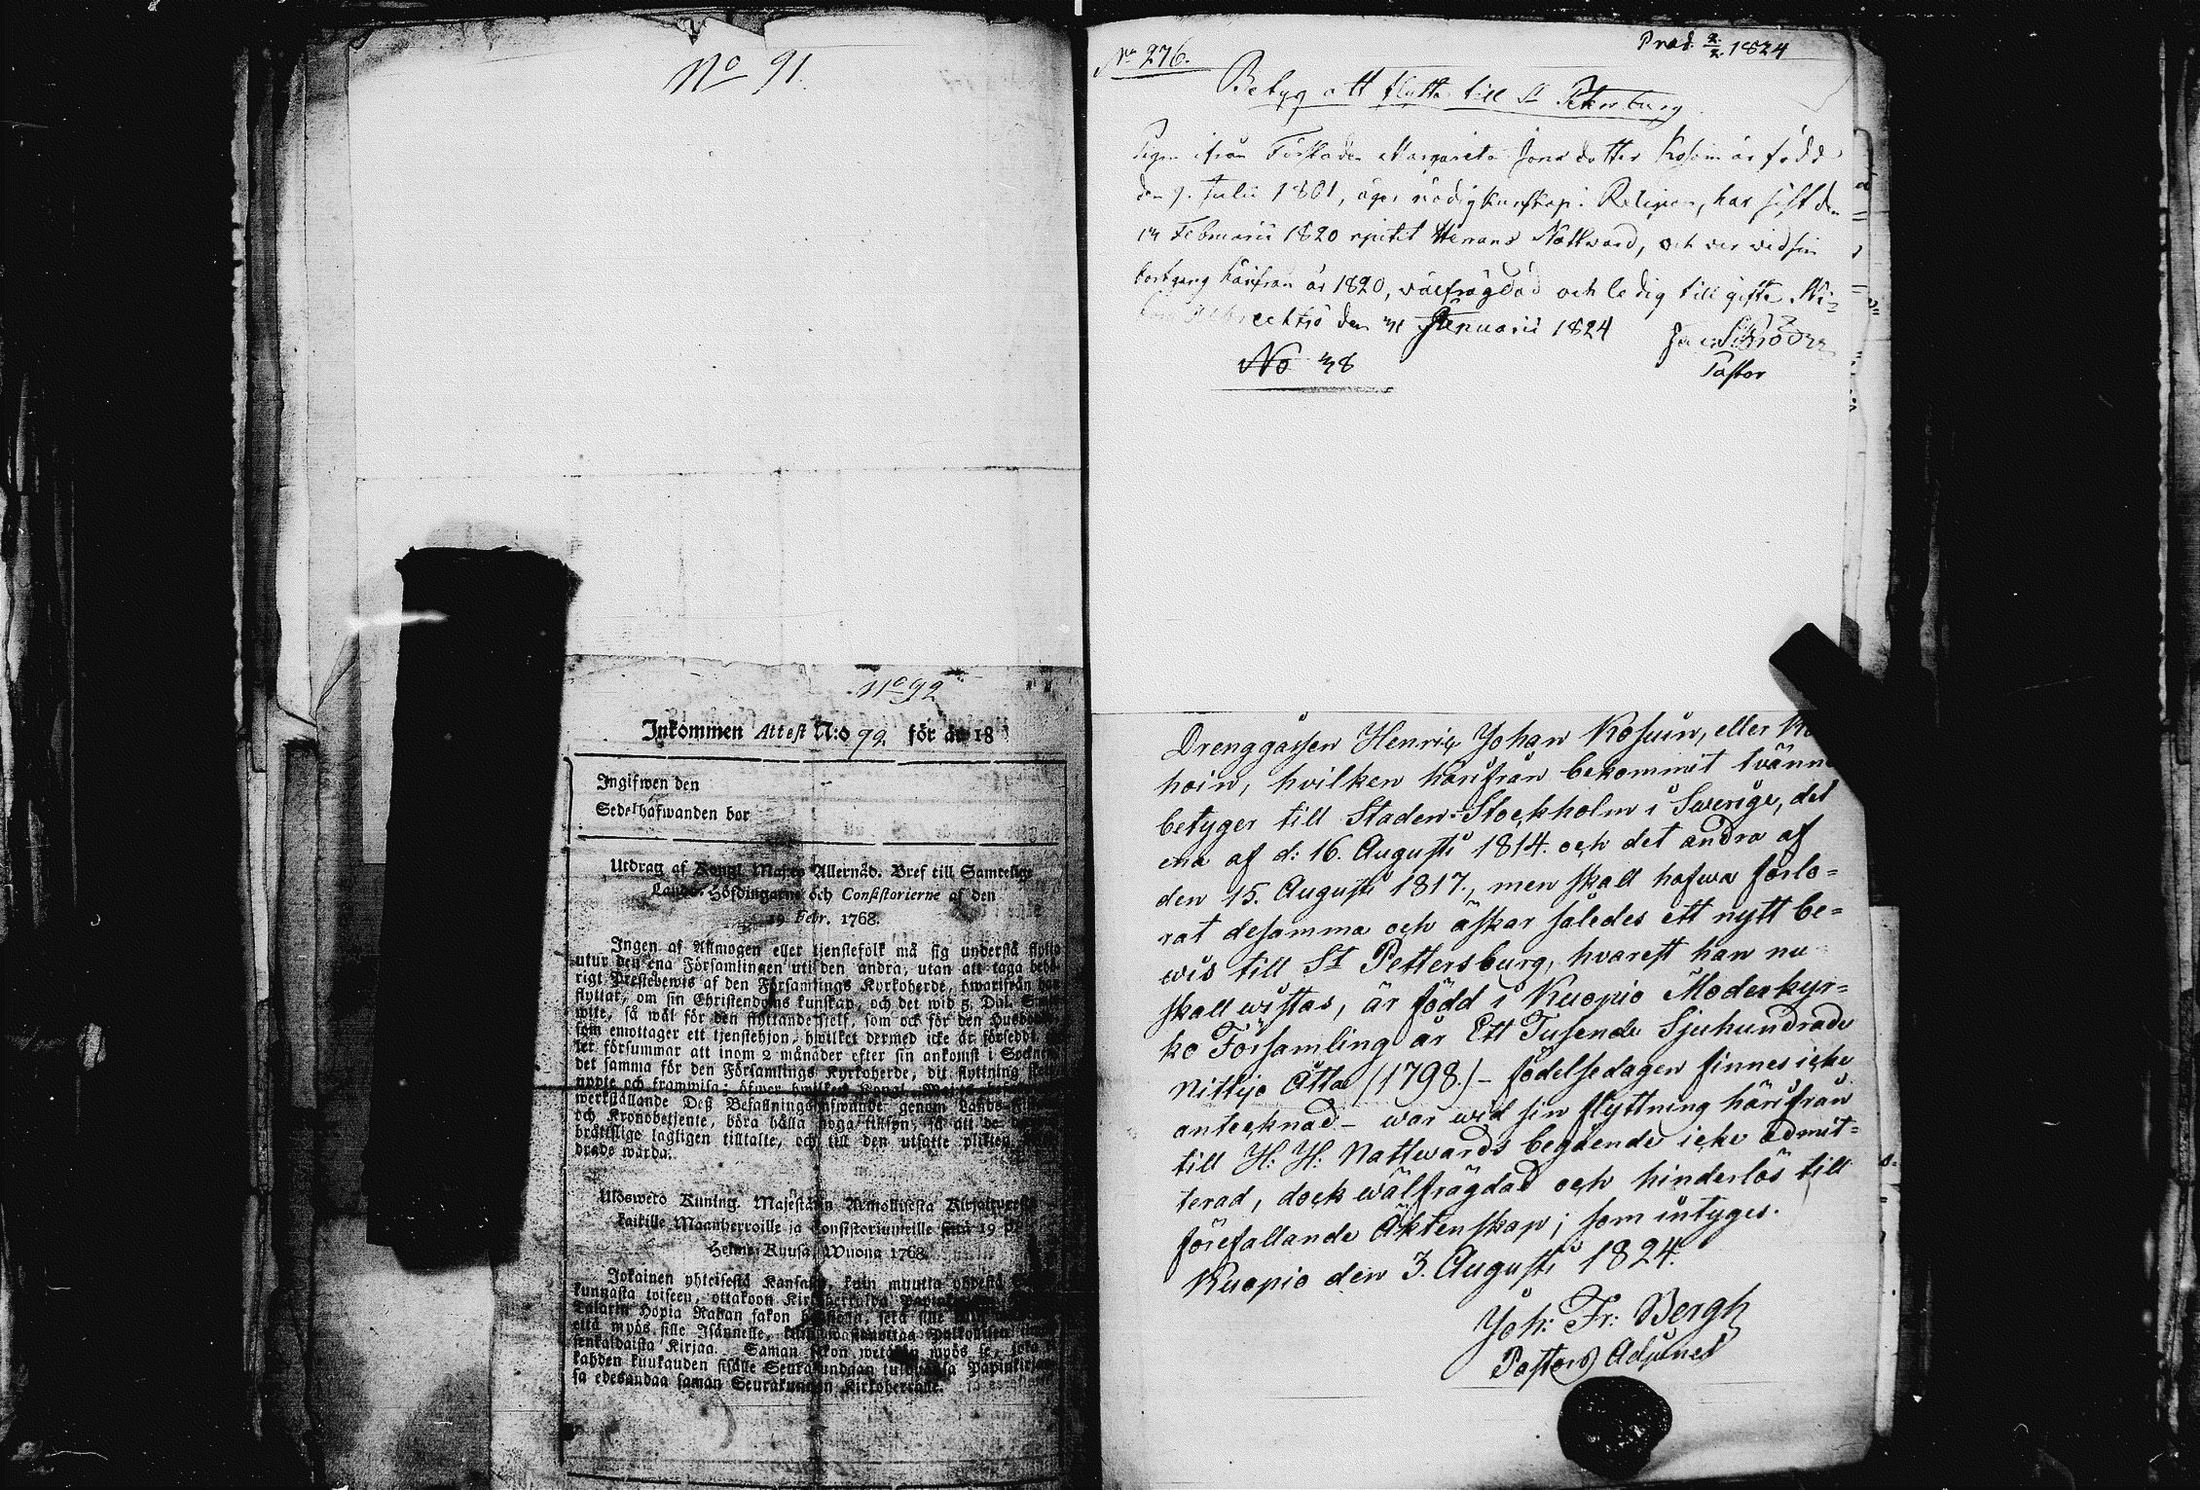 No 91.
No 92
Inkommen Attest N:o 92. för år 18
Ingifwen den
Sedelhafwanden bor
Utdrag af Kongl. Maj:ts Allernåd. Bref till Samtelige
Lands-Höfdingarne och Consistorierne af den
19 Febr. 1768.
Ingen af Allmogen eller tjenstefolk må sig understå flytta
utur den ena Församlingen uti den andra, utan att taga behö-
rigt Prestebewis af den Församlings Kyrkoherde, hwarifrån han
flyttar, om sin Christendoms kunskap, och det wid 5. Dal. S:mts
wite, så wäl för den flyttande sjelf, som ock för den Husbonde,
som emottager ett tjenstehjon, hwilket dermed icke är försedt
ler försummar att inom 2 månader efter sin ankomst i Socknen
det samma för den Församlings Kyrkoherde, dit flyttning skett,
uppte och framwisa; öfwer hwilket Kongl. Maj:ts
werkställande Deß Befallningshafwande genom Lands-
och Kronobetjente, böra hålla noga tillsyn, så att de
brottslige lagligen tilltalte, och till den utsatte plikten
drade warda.
Ulosweto Kuning. Majestätin Armollisesta Kirjoituxesta
kaikille Maanherroille ja Consistoriumeille siitä 19 p.
Helme-Kuusa, Wuona 1768.
Jokainen yhteisestä Kansasta, kuin muutta yhdestä
kunnasta toiseen, ottakoon Kirkkoherralda Papin
Talarin Hopia Rahan sakon
että myös sille Isännelle,
senkaldaista Kirjaa. Saman sakon wetäkön myös se, joka
kahden kuukauden sisälle Seurakundaan tulduansa Papinkirjaa
sa edesandaa saman Seurakunnan Kirkoherralle.
No 276.
Prod. 2/2 1824
Betyg att flytta till St Petersburg
Pigan ifrån Förstaden Margareta Jonsdotter Kosoin är född
den 9. Julii 1801, äger nödig kunskap i Religion, har sist den
Februarii 1820 njutit Herrans Nattward, och var vid sin
bortgång härifrån år 1820, välfrägdad och ledig till gifte.
den 31 Januarii 1824
Schröder
Pastor
No 38
Drenggåssen Henric Johan Kosuin, eller Ko
hoin, hvilken härifrån bekommit tvänne
betyger till Staden Stockholm i Swerige, det
ena af d: 16. Augusti 1814. och det andra af
den 15. Augusti 1817., men skall hafwa förlo=
rat desamma och äskar således ett nytt be=
wis till St Pettersburg, hvarest han nu
skall wistas, är född i Kuopio Moderkyr=
ko Församling år Ett Tusende Sjuhundrade
Nittijo Åtta (1798.) – födelsedagen finnes icke
antecknad – war wid sin flyttning härifrån
till H: H: Nattwards begående icke admit=
terad, dock wälfrägdad och hinderlös till
förefallande Äktenskap; som intyges.
Kuopio den 3. Augusti 1824.
Joh: Fr: Bergh
Pastors Adjunct